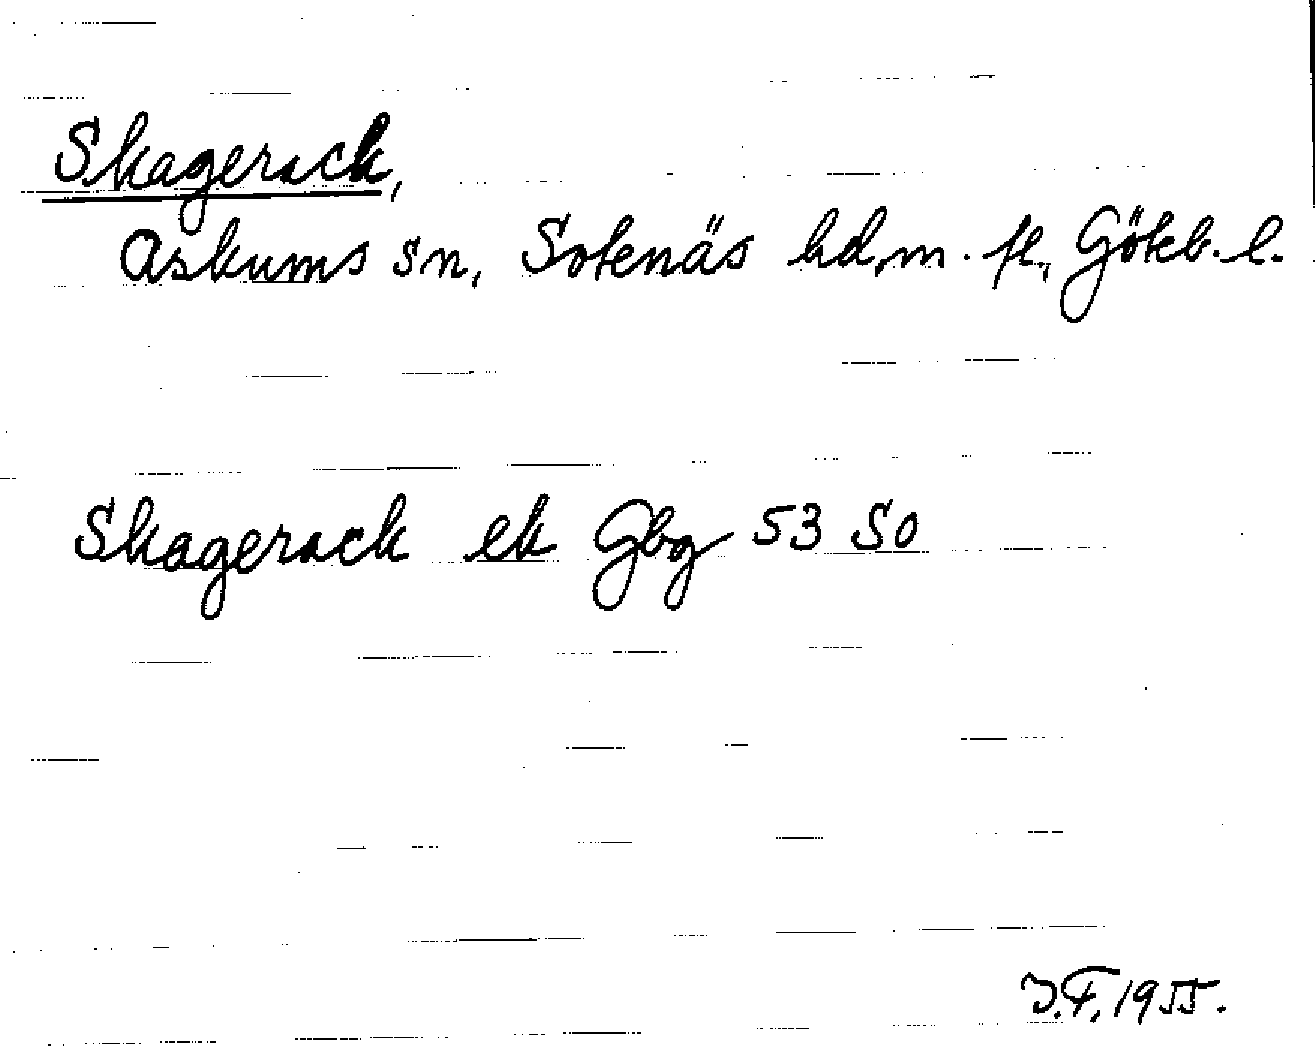 Skagerack,
Askums sn, Sotenäs hd, m. fl., Göteb. l.
Skagerack ek Gbg 53 So
J.F. 1955.